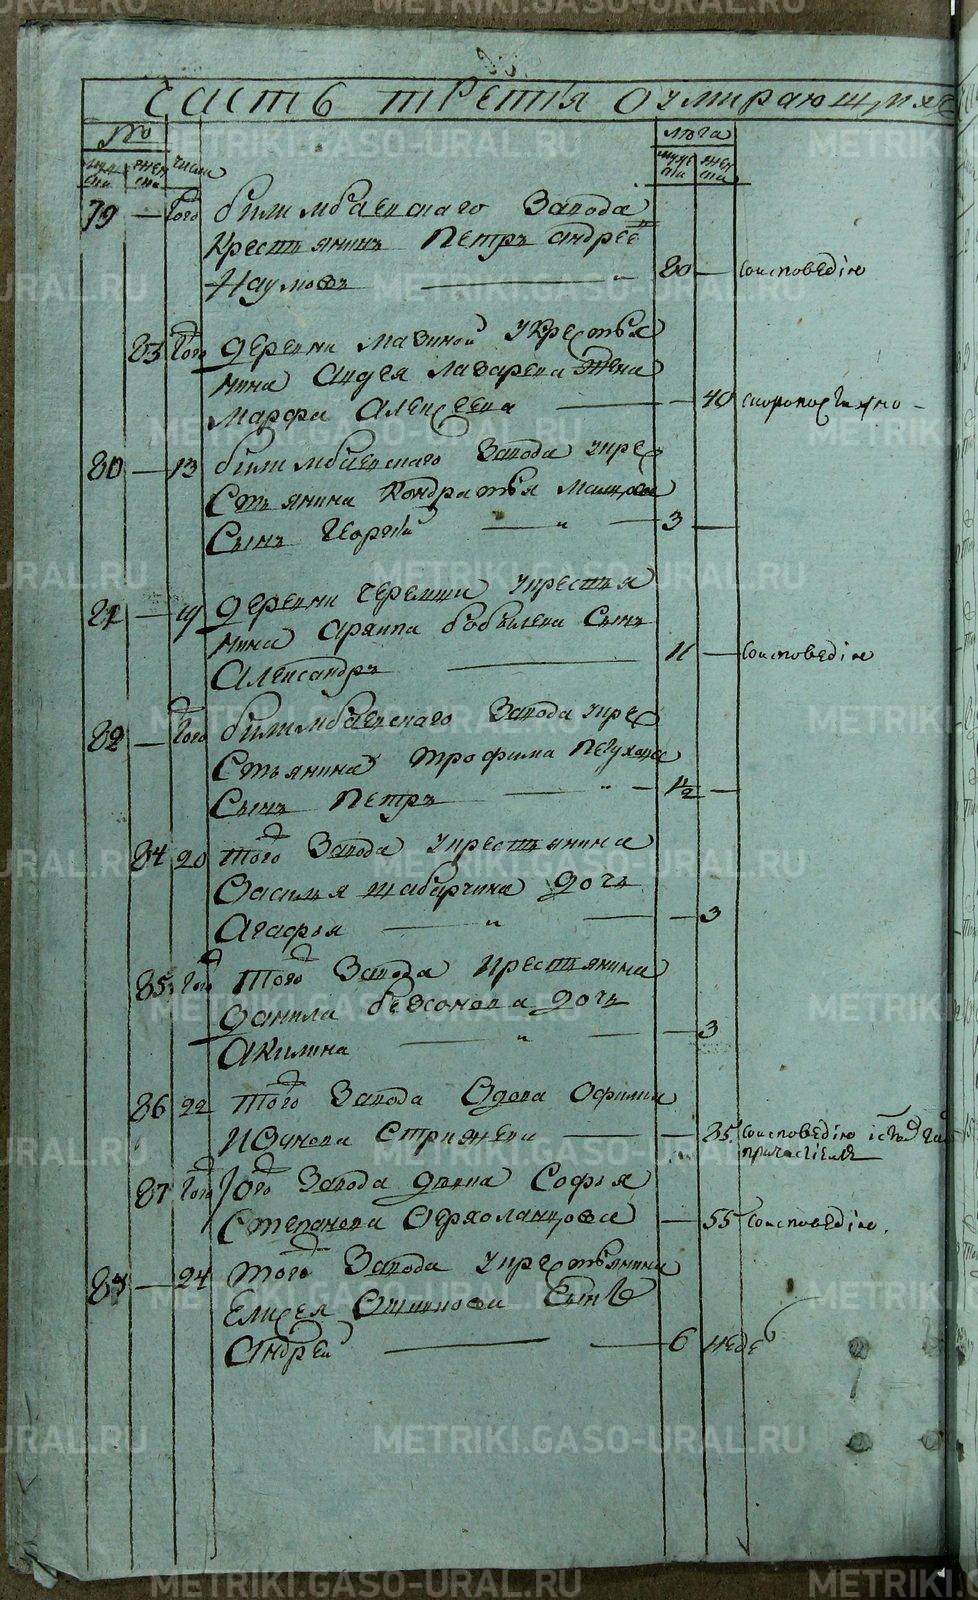 часть третия оумирающихъ
№
лѣта
муж ска
женска
числа
муже ска
женска
79 — того билимбаевскаго завода
крестьянинъ Петръ андрее
Наумовъ — 80 — Соисповедію
83 того деревни мазиной укрестья
нина андея лазарева жена
марфа Алексеева — 40 скоропостижно —
80 — 13 билимбаевскаго завода укре
Стьянина Кондратья
Сынъ Георгій — „ — 3 —
81 — 19 деревни Черемши укрестья
нина архипа бобылева Сынъ
Александръ — 11 — Соисповедію
82 — того билимбаевскаго завода укре
Стьянина трофима Петухова
Сынъ Петръ — „ — 1/2 —
84 20 того завода укрестьянина
Василья шабарчина дочь
Агафья — „ — 3
85 того того завода крестьянина
данила безсонова дочь
Акилина — „ — 3
86 22 того завода вдова Офимия
Иванова Стрижева — 85 Соисповедію
причастіемъ
87 того того завода девка Софья
Степанова — 55 Соисповедію.
83 — 24 того завода укрестьянина
Елисея Сынъ
Андрей — 6 неде
METRIKI.GASO-URAL.RU